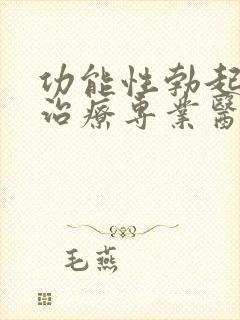 功能性勃起
治療專業醫
毛燕